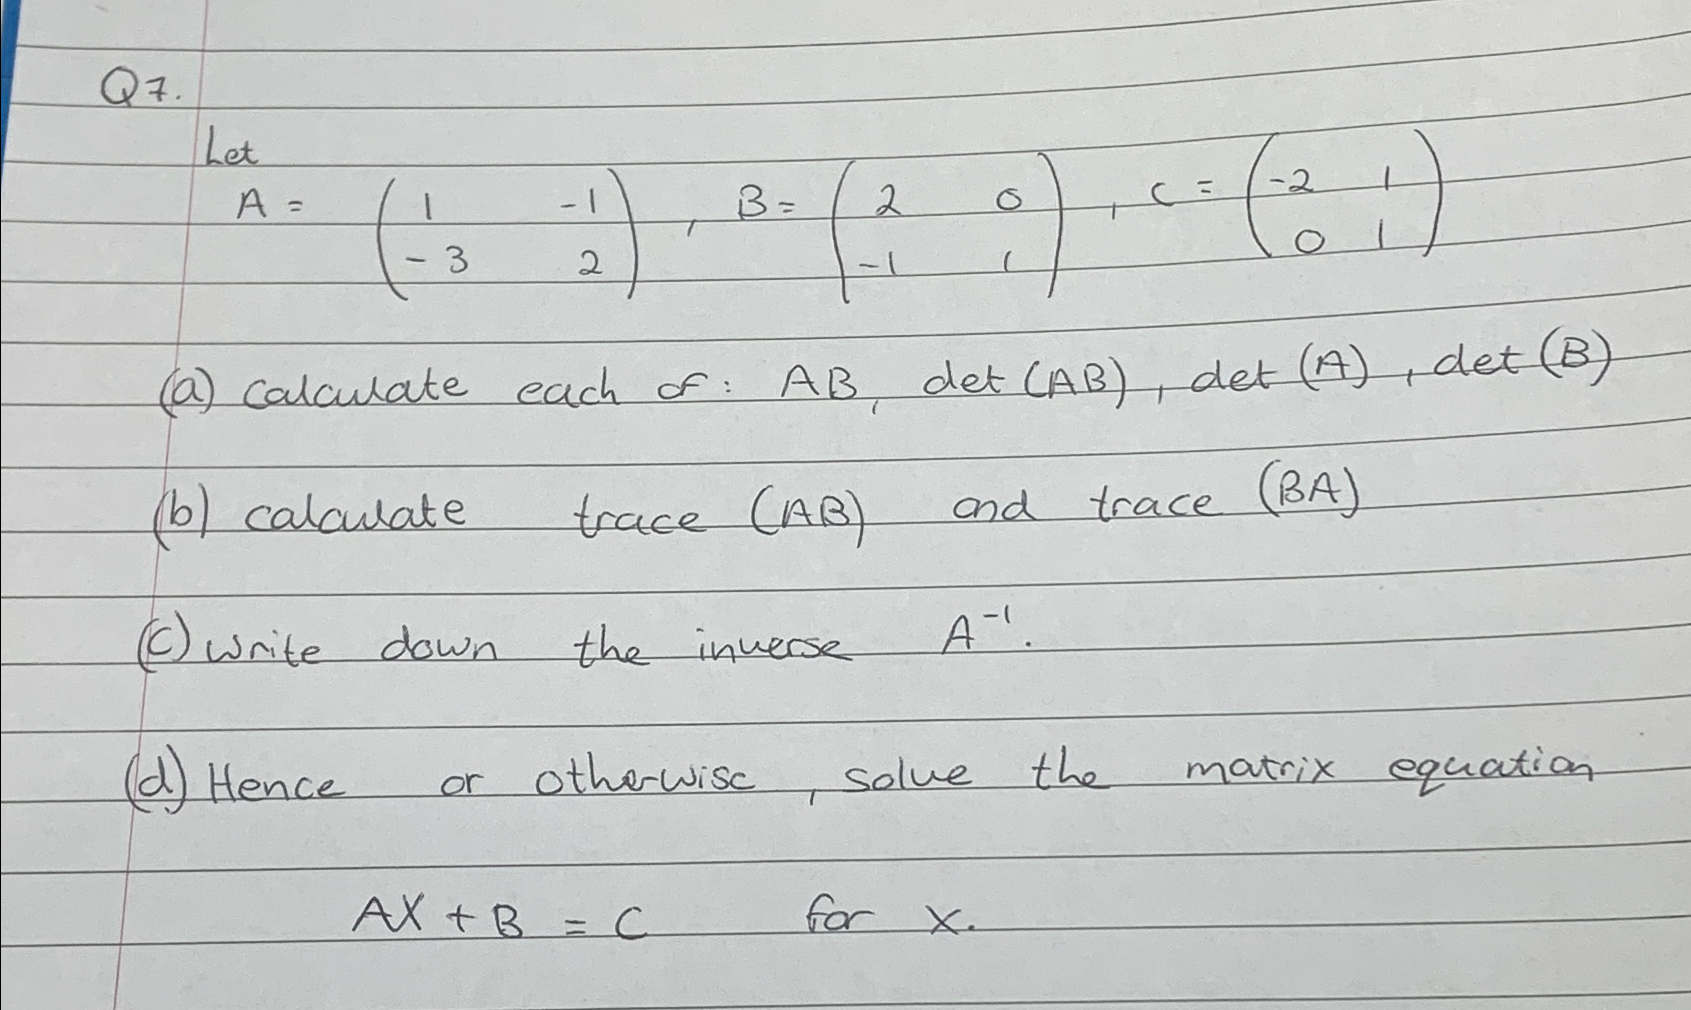 Q7.
Let
A = ( 1 -1 ; -3 2 ), B = ( 2 0 ; -1 1 ), C = ( -2 1 ; 0 1 )
(a) calculate each of: AB, det (AB), det (A), det (B)
(b) calculate trace (AB) and trace (BA)
(c) write down the inverse A⁻¹.
(d) Hence or otherwise, solve the matrix equation
AX + B = C for X.